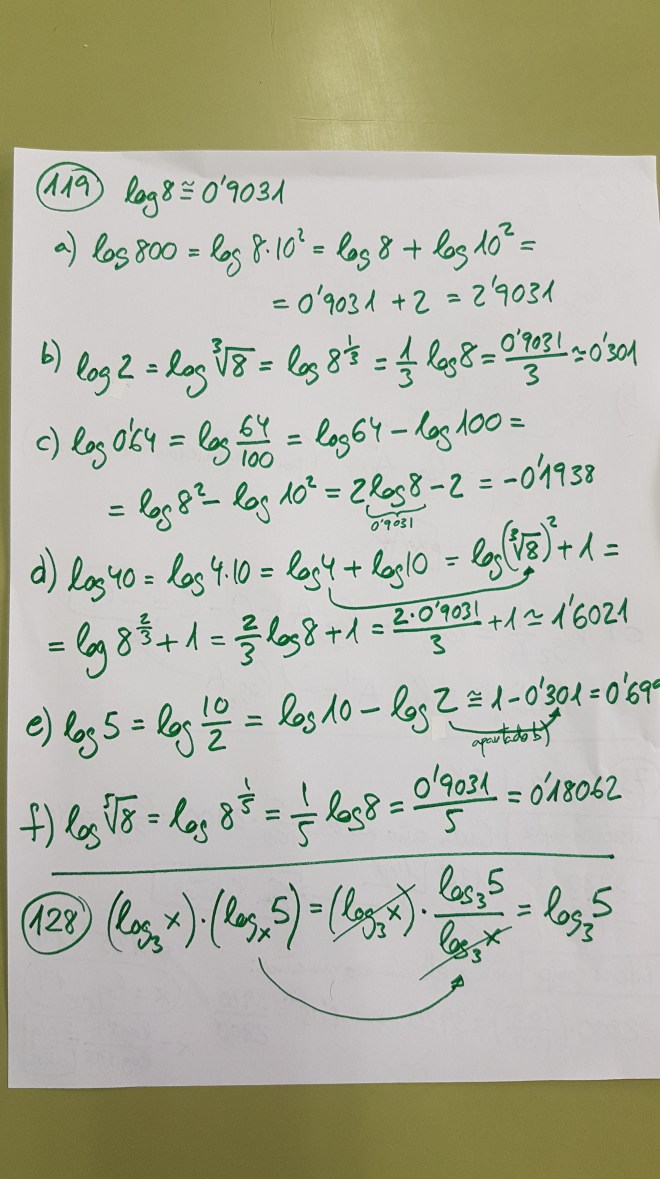 119 log 8 ≅ 0'9031
a) log 800 = log 8·10² = log 8 + log 10² =
= 0'9031 + 2 = 2'9031
b) log 2 = log ∛8 = log 8^(1/3) = 1/3 log 8 = 0'9031/3 ≃ 0'301
c) log 0'64 = log 64/100 = log 64 − log 100 =
= log 8² − log 10² = 2 log 8 − 2 = −0'1938
0'9031
d) log 40 = log 4·10 = log 4 + log 10 = log (∛8)² + 1 =
= log 8^(2/3) + 1 = 2/3 log 8 + 1 = 2·0'9031/3 + 1 ≃ 1'6021
e) log 5 = log 10/2 = log 10 − log 2 ≅ 1 − 0'301 = 0'699
apartado b)
f) log ⁵√8 = log 8^(1/5) = 1/5 log 8 = 0'9031/5 = 0'18062
128 (log₃ x)·(logₓ 5) = (log₃ x) · log₃ 5/log₃ x = log₃ 5